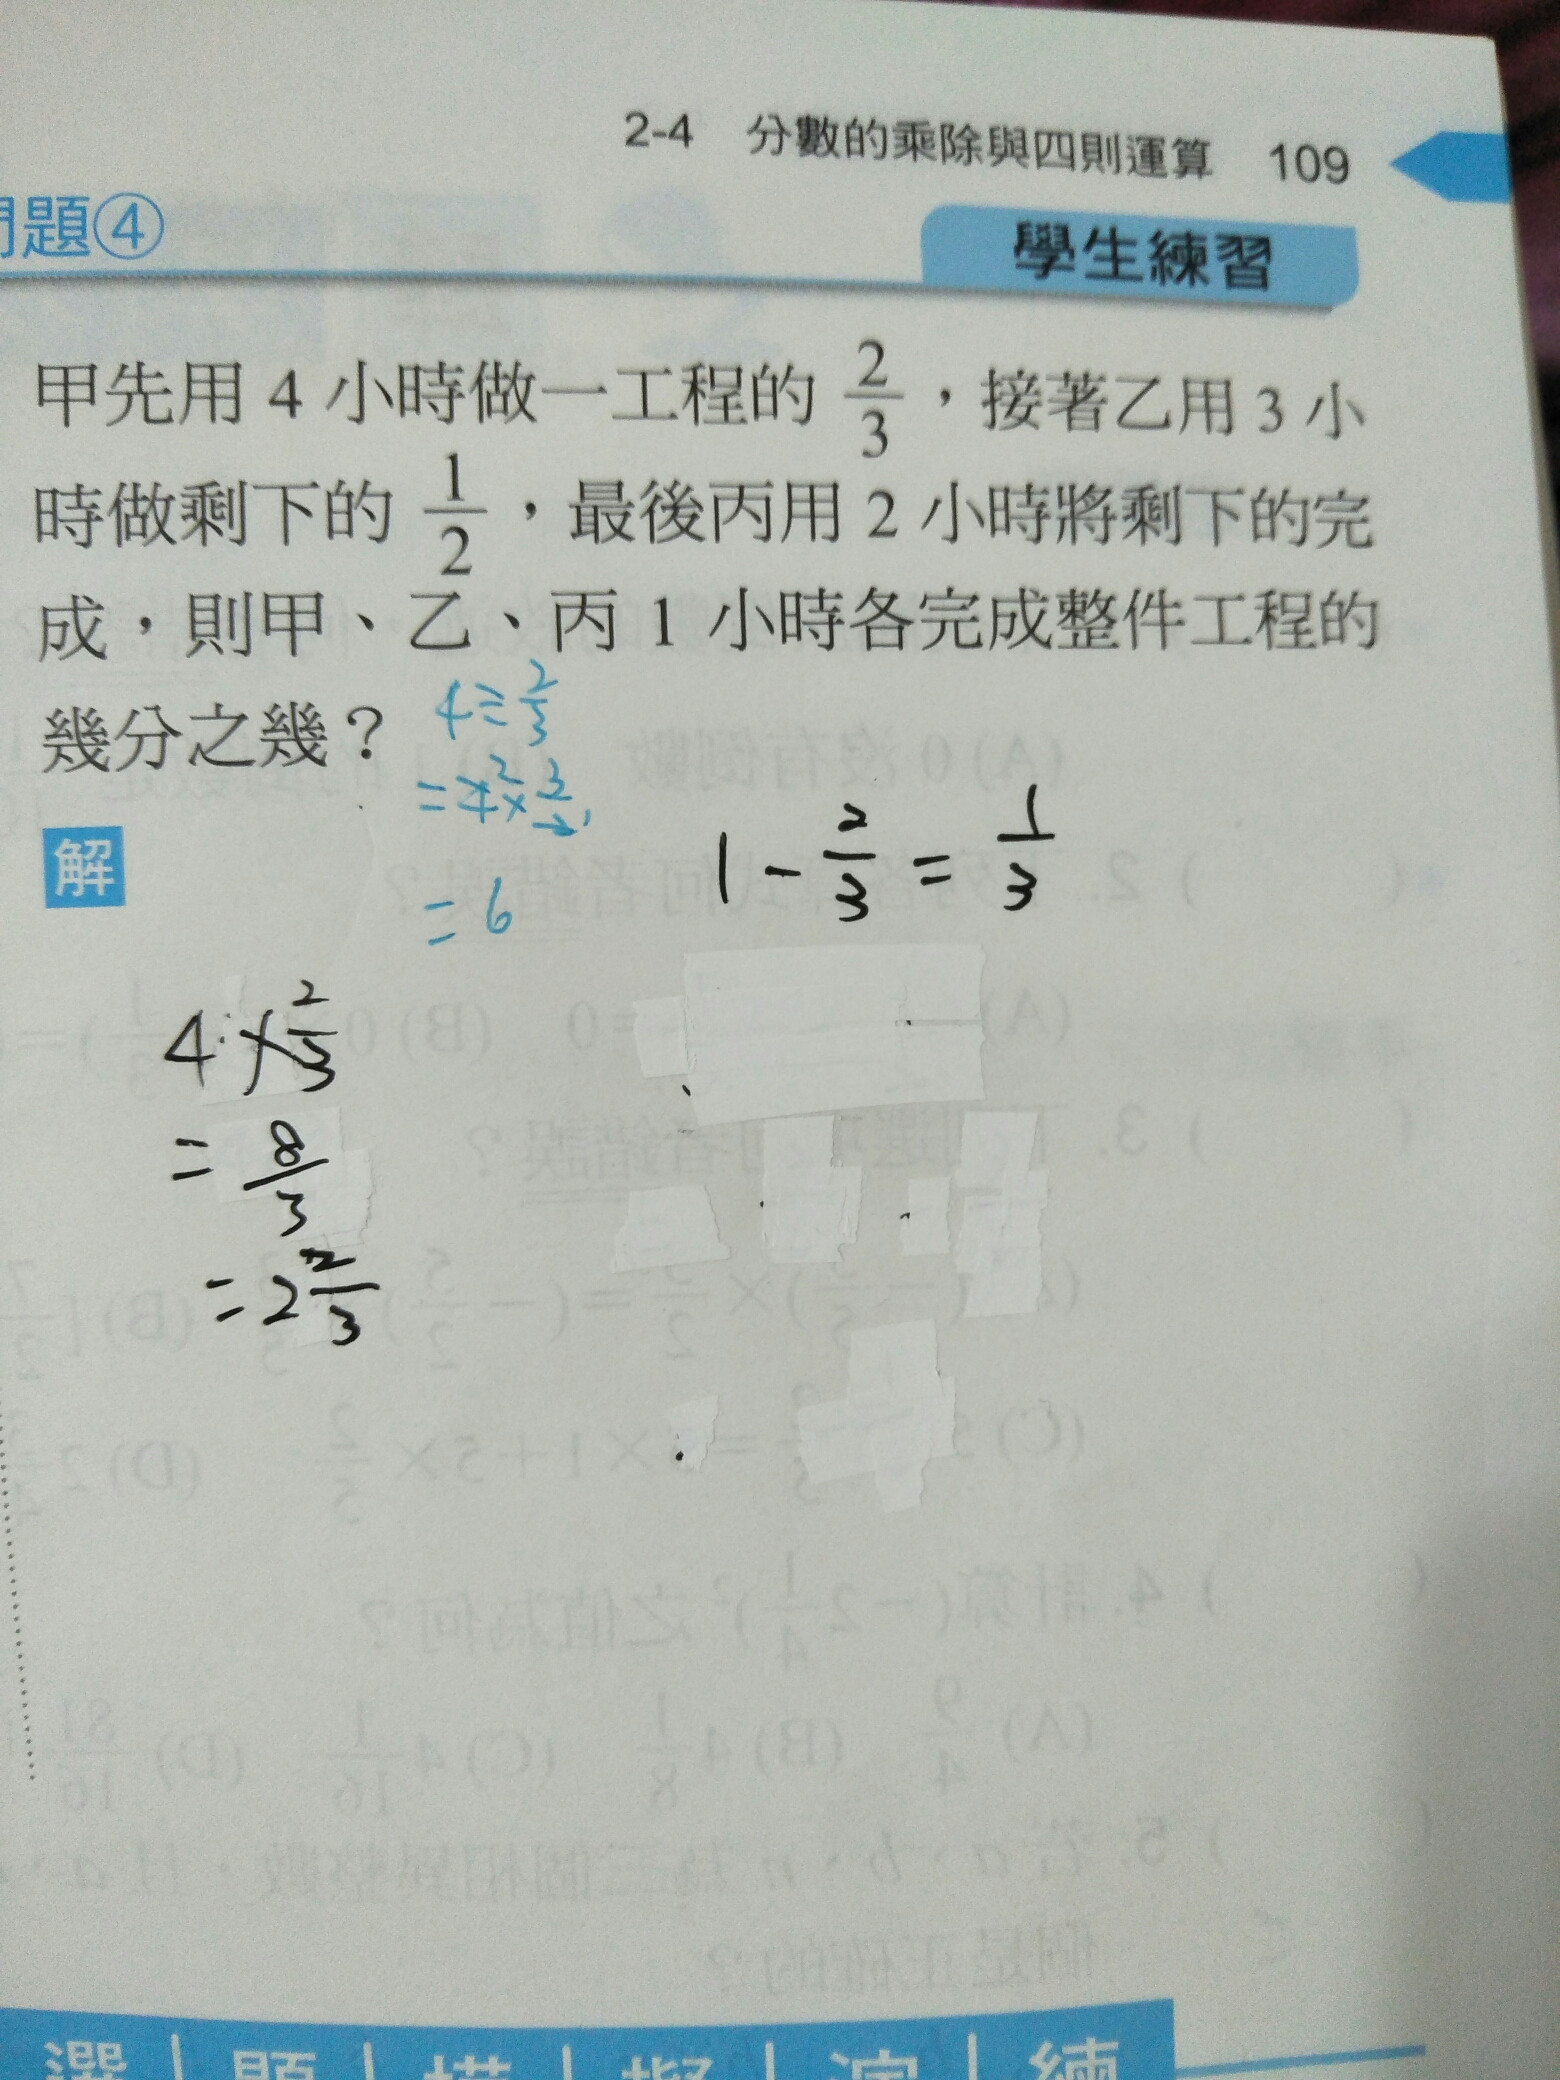 2-4 分數的乘除與四則運算 109
題④
學生練習
甲先用 4 小時做一工程的 2/3，接著乙用 3 小
時做剩下的 1/2，最後丙用 2 小時將剩下的完
成，則甲、乙、丙 1 小時各完成整件工程的
幾分之幾？
4÷2/3
=6
1-2/3=1/3
解
4×2/3
=8/3
=2 2/3
選 題 模 擬 演 練